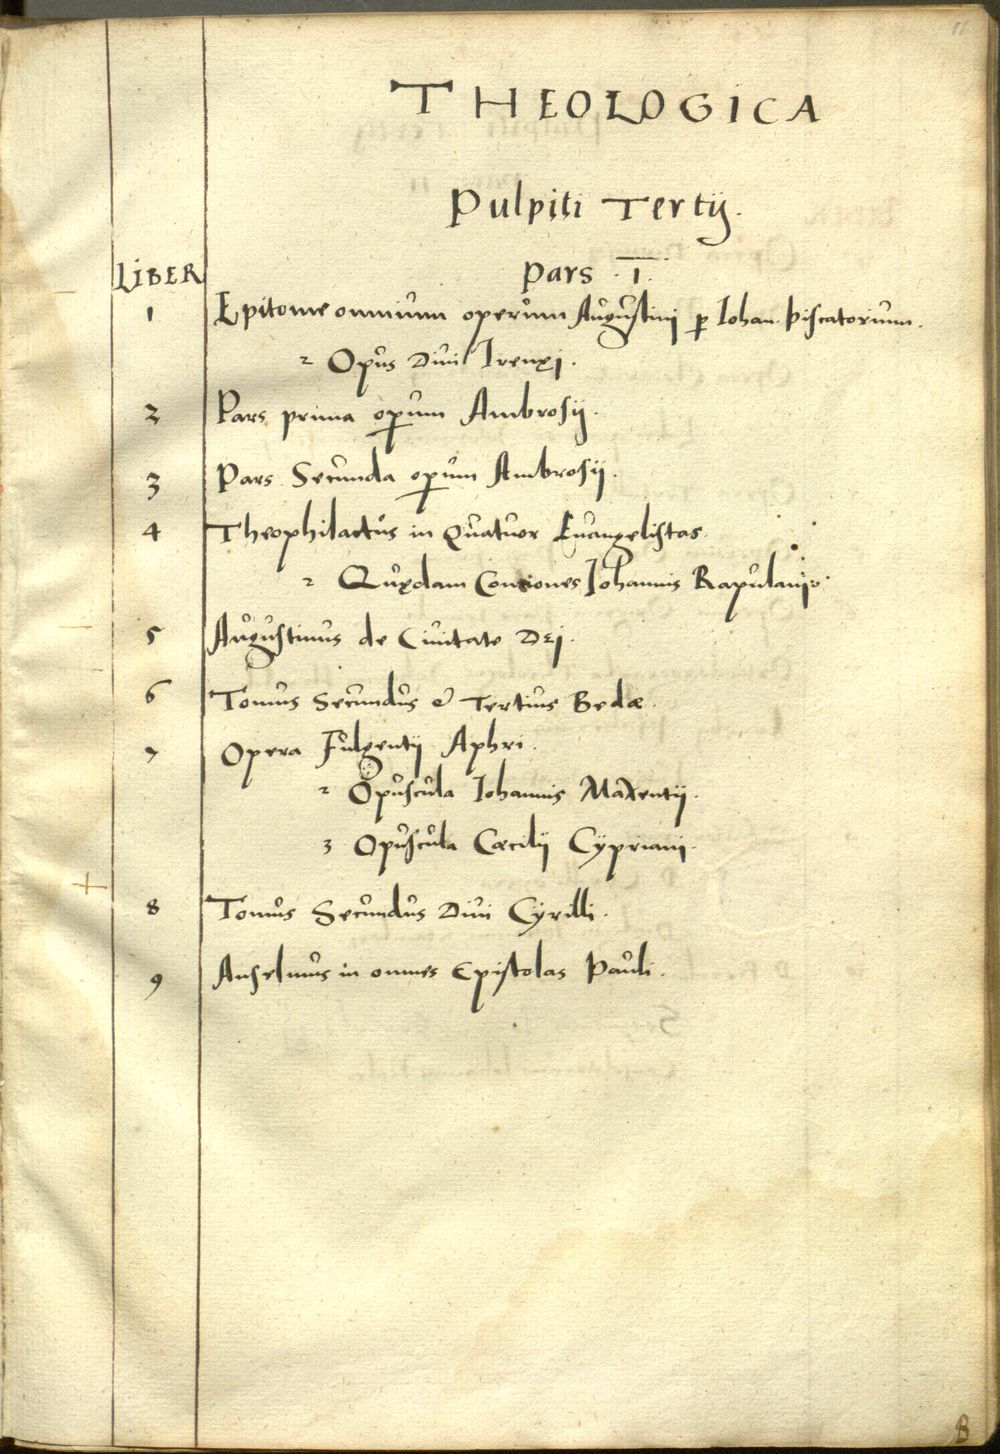 THEOLOGICA
Pulpiti Tertij.
LIBER
Pars I.
1 Epitome omnium operum Augustini p Iohan. Piscatorium.
2 Opus Diui Irenęj.
2 Pars prima opum Ambrosij.
3 Pars Secunda opum Ambrosij.
4 Theophilactus in Quatuor Euangelistas.
2 Quędam Conciones Iohannis Rapulani.
5 Augustinus de Ciuitate Dej.
6 Tomus Secundus & Tertius Bedæ.
7 Opera Fulgentij Aphri.
2 Opuscula Iohannis Maxentij.
3 Opuscula Cæcilij Cypriani.
8 Tomus Secundus Diui Cyrilli.
9 Anselmus in omnes Epistolas Pauli.
8